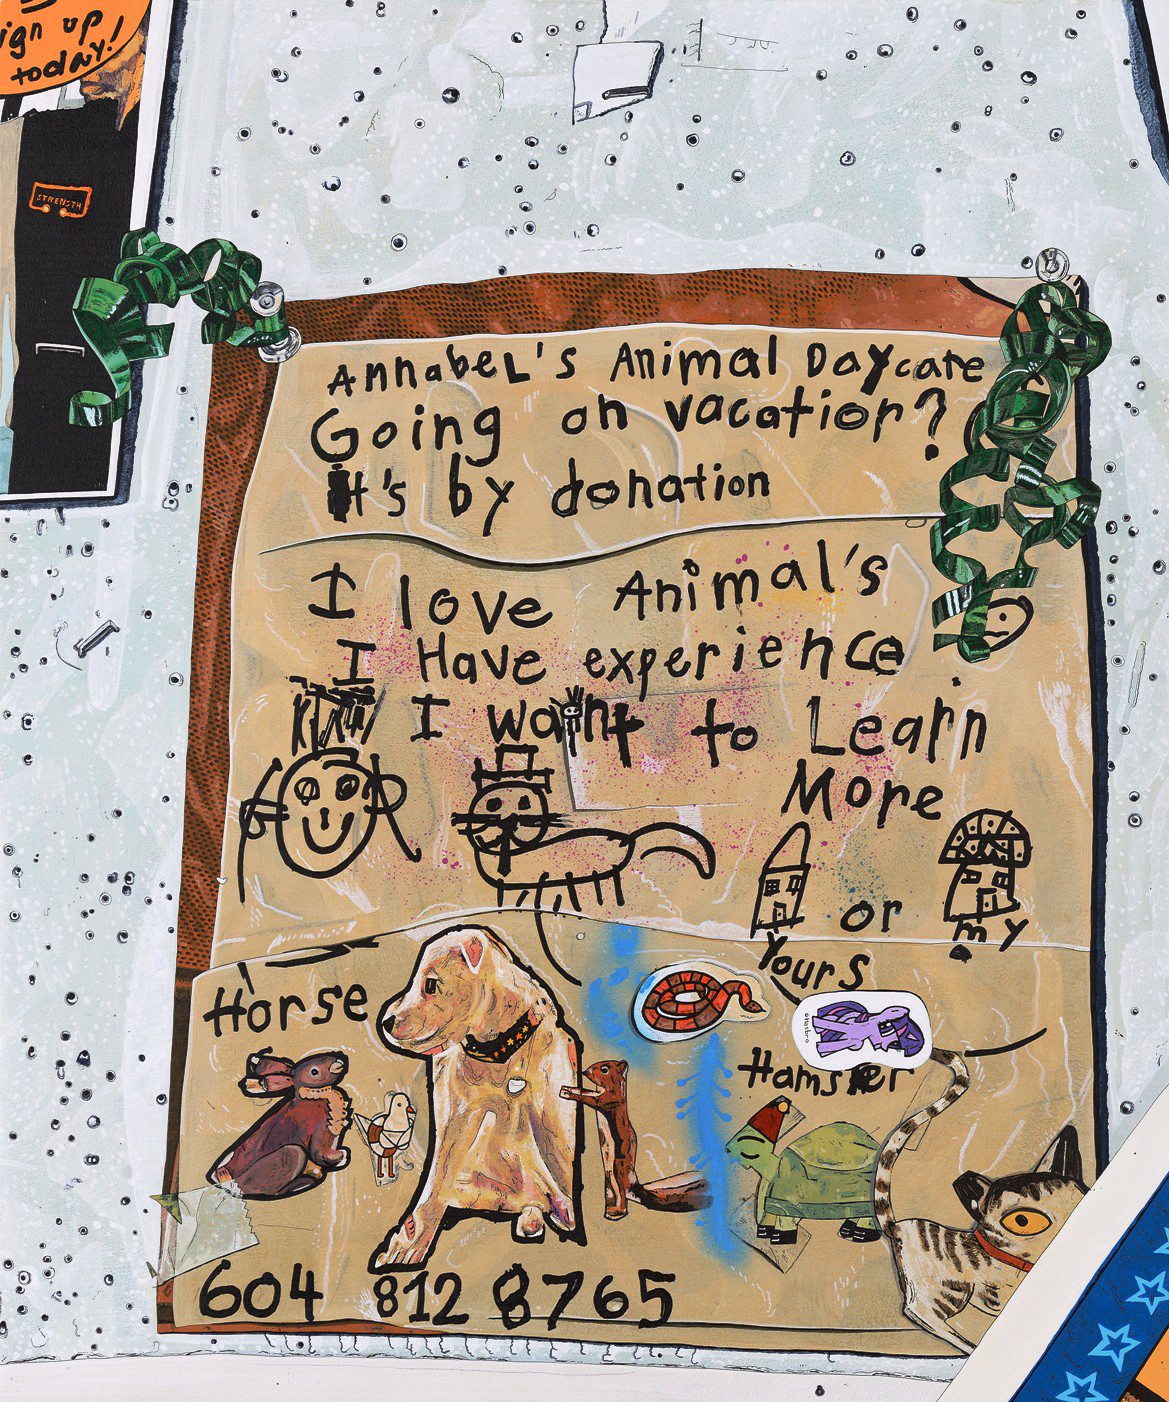 ign up
today!
STRENGTH
AnnabeL's Animal Daycare
Going on vacation?
It's by donation
I love Animal's
I Have experience
I want to Learn
More
or
Yours
my
Horse
©Hasbro
Hamster
604 812 8765